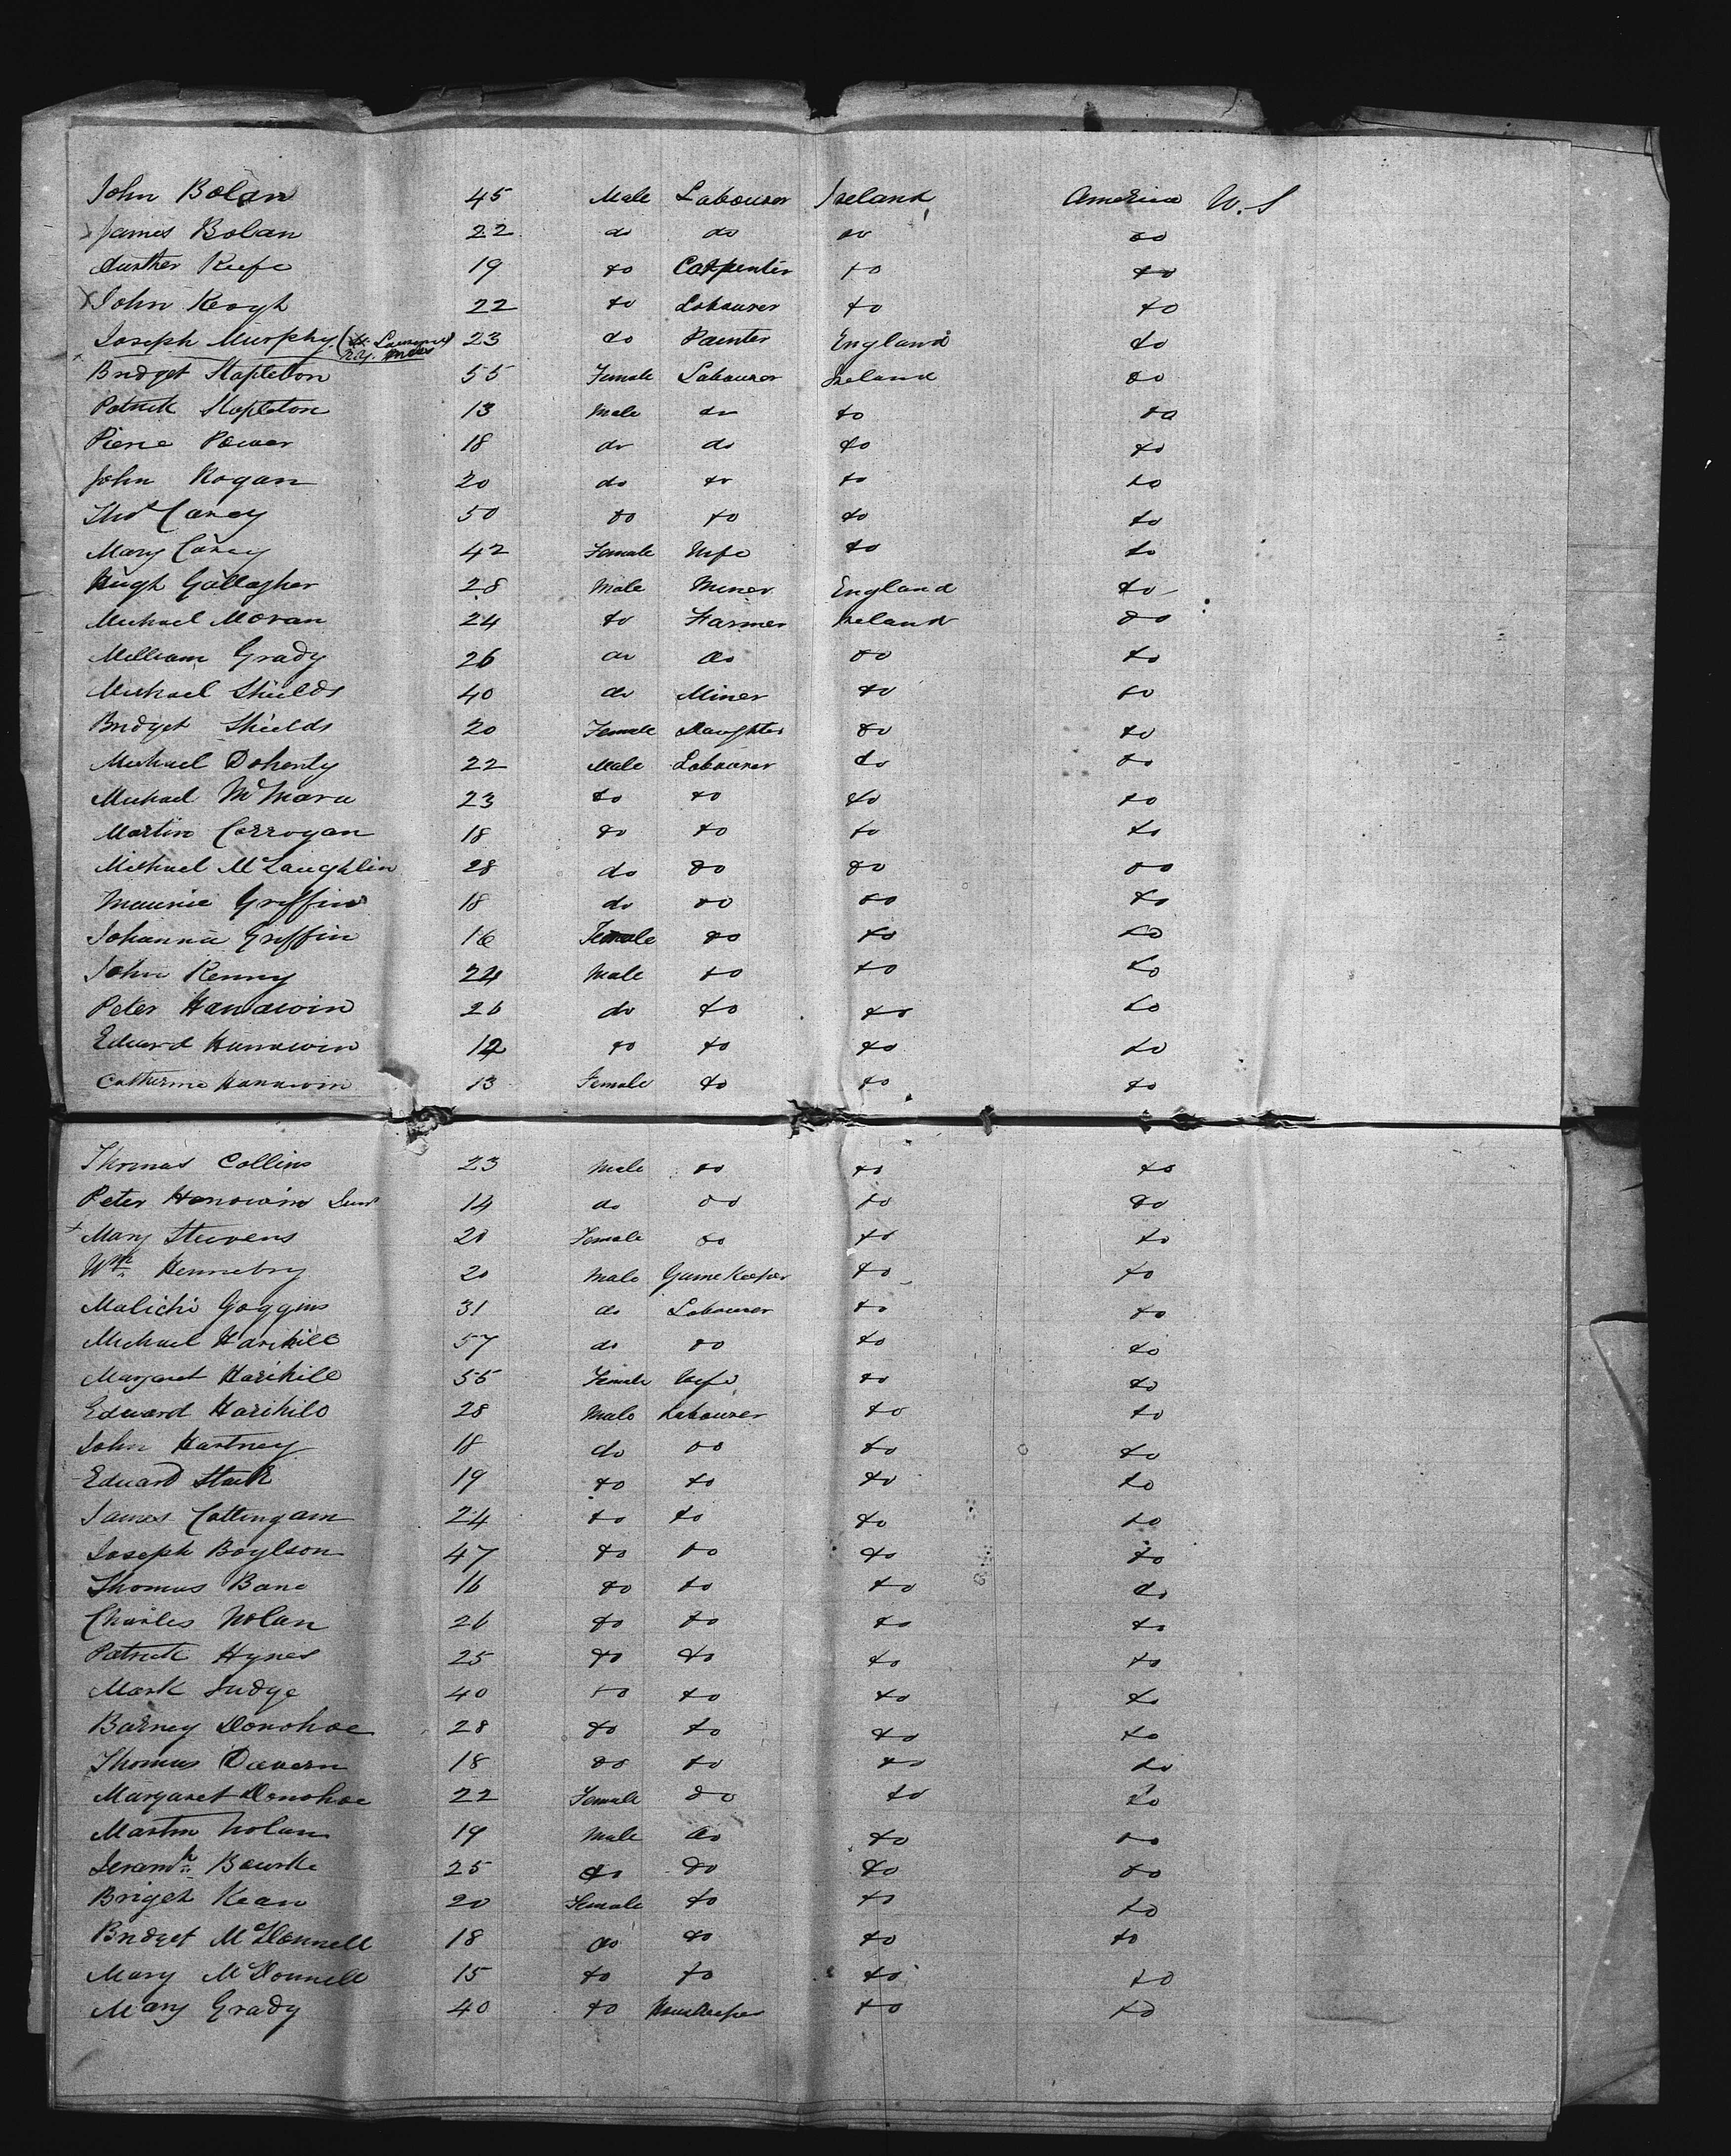 John Bolan 45 Male Labourer Ireland America U.S
James Bolan 22 do do do do
Keefe 19 do Carpenter do do
John Keogh 22 do Labourer do do
Joseph Murphy 23 do Painter England do
Bridget Stapleton 55 Female Labourer Ireland do
Patrick Stapleton 13 Male do do do
Pierce Power 18 do do do do
John Rogan 20 do do do do
Thos Carey 50 do do do do
Mary Carey 42 Female Wife do do
Hugh Gallagher 28 Male Miner England do
Michael Moran 24 do Farmer Ireland do
William Grady 26 do do do do
Michael Shields 40 do Miner do do
Bridget Shields 20 Female Daughter do do
Michael Doherty 22 Male Labourer do do
Michael McMara 23 do do do do
Martin Corrogan 18 do do do do
Michael McLaughlin 28 do do do do
Maurice Griffin 18 do do do do
Johanna Griffin 16 Female do do do
John Kenny 24 Male do do do
Peter Hanawin 26 do do do do
Edward Hanawin 12 do do do do
Catherine Hanawin 13 Female do do do
Thomas Collins 23 Male do do do
Peter Hanawin Junr 14 do do do do
Mary Stevens 20 Female do do do
Wm Hennebry 20 Male Game Keeper do do
Malichi Goggins 31 do Labourer do do
Michael Harihill 57 do do do do
Margaret Harihill 55 Female Wife do do
Edward Harihill 28 Male Labourer do do
John Hartney 18 do do do do
Edward Stack 19 do do do do
James Cottingam 24 do do do do
Joseph Boylson 47 do do do do
Thomas Bane 16 do do do do
Charles Nolan 26 do do do do
Patrick Hynes 25 do do do do
Mark Judge 40 do do do do
Barney Donohoe 28 do do do do
Thomas Davern 18 do do do do
Margaret Donohoe 22 Female do do do
Martin Nolan 19 Male do do do
Bourke 25 do do do do
Briget Kean 20 Female do do do
Bridget McDonnell 18 do do do do
Mary McDonnell 15 do do do do
Mary Grady 40 do Housekeeper do do